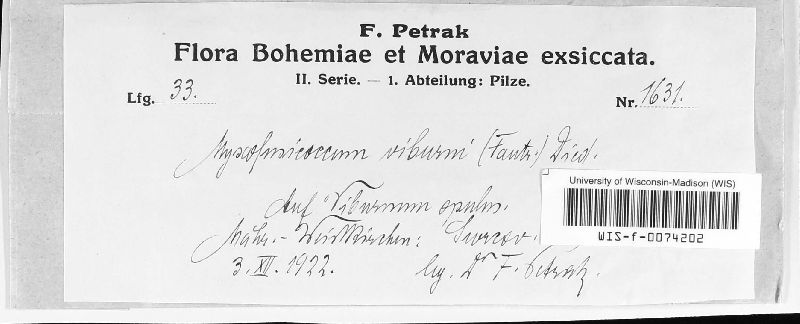 F. Petrak
Flora Bohemiae et Moraviae exsiccata.
II. Serie. — 1. Abteilung: Pilze.
Lfg. 33.
Nr. 1631.
Myxofusicoccum viburni (Fautr.) Died.
Auf Viburnum opulus.
Mähr.-Weisskirchen: Svrcov.
3. XII. 1922. lg. Dr F. Petrak.
University of Wisconsin-Madison (WIS)
WIS-f-0074202